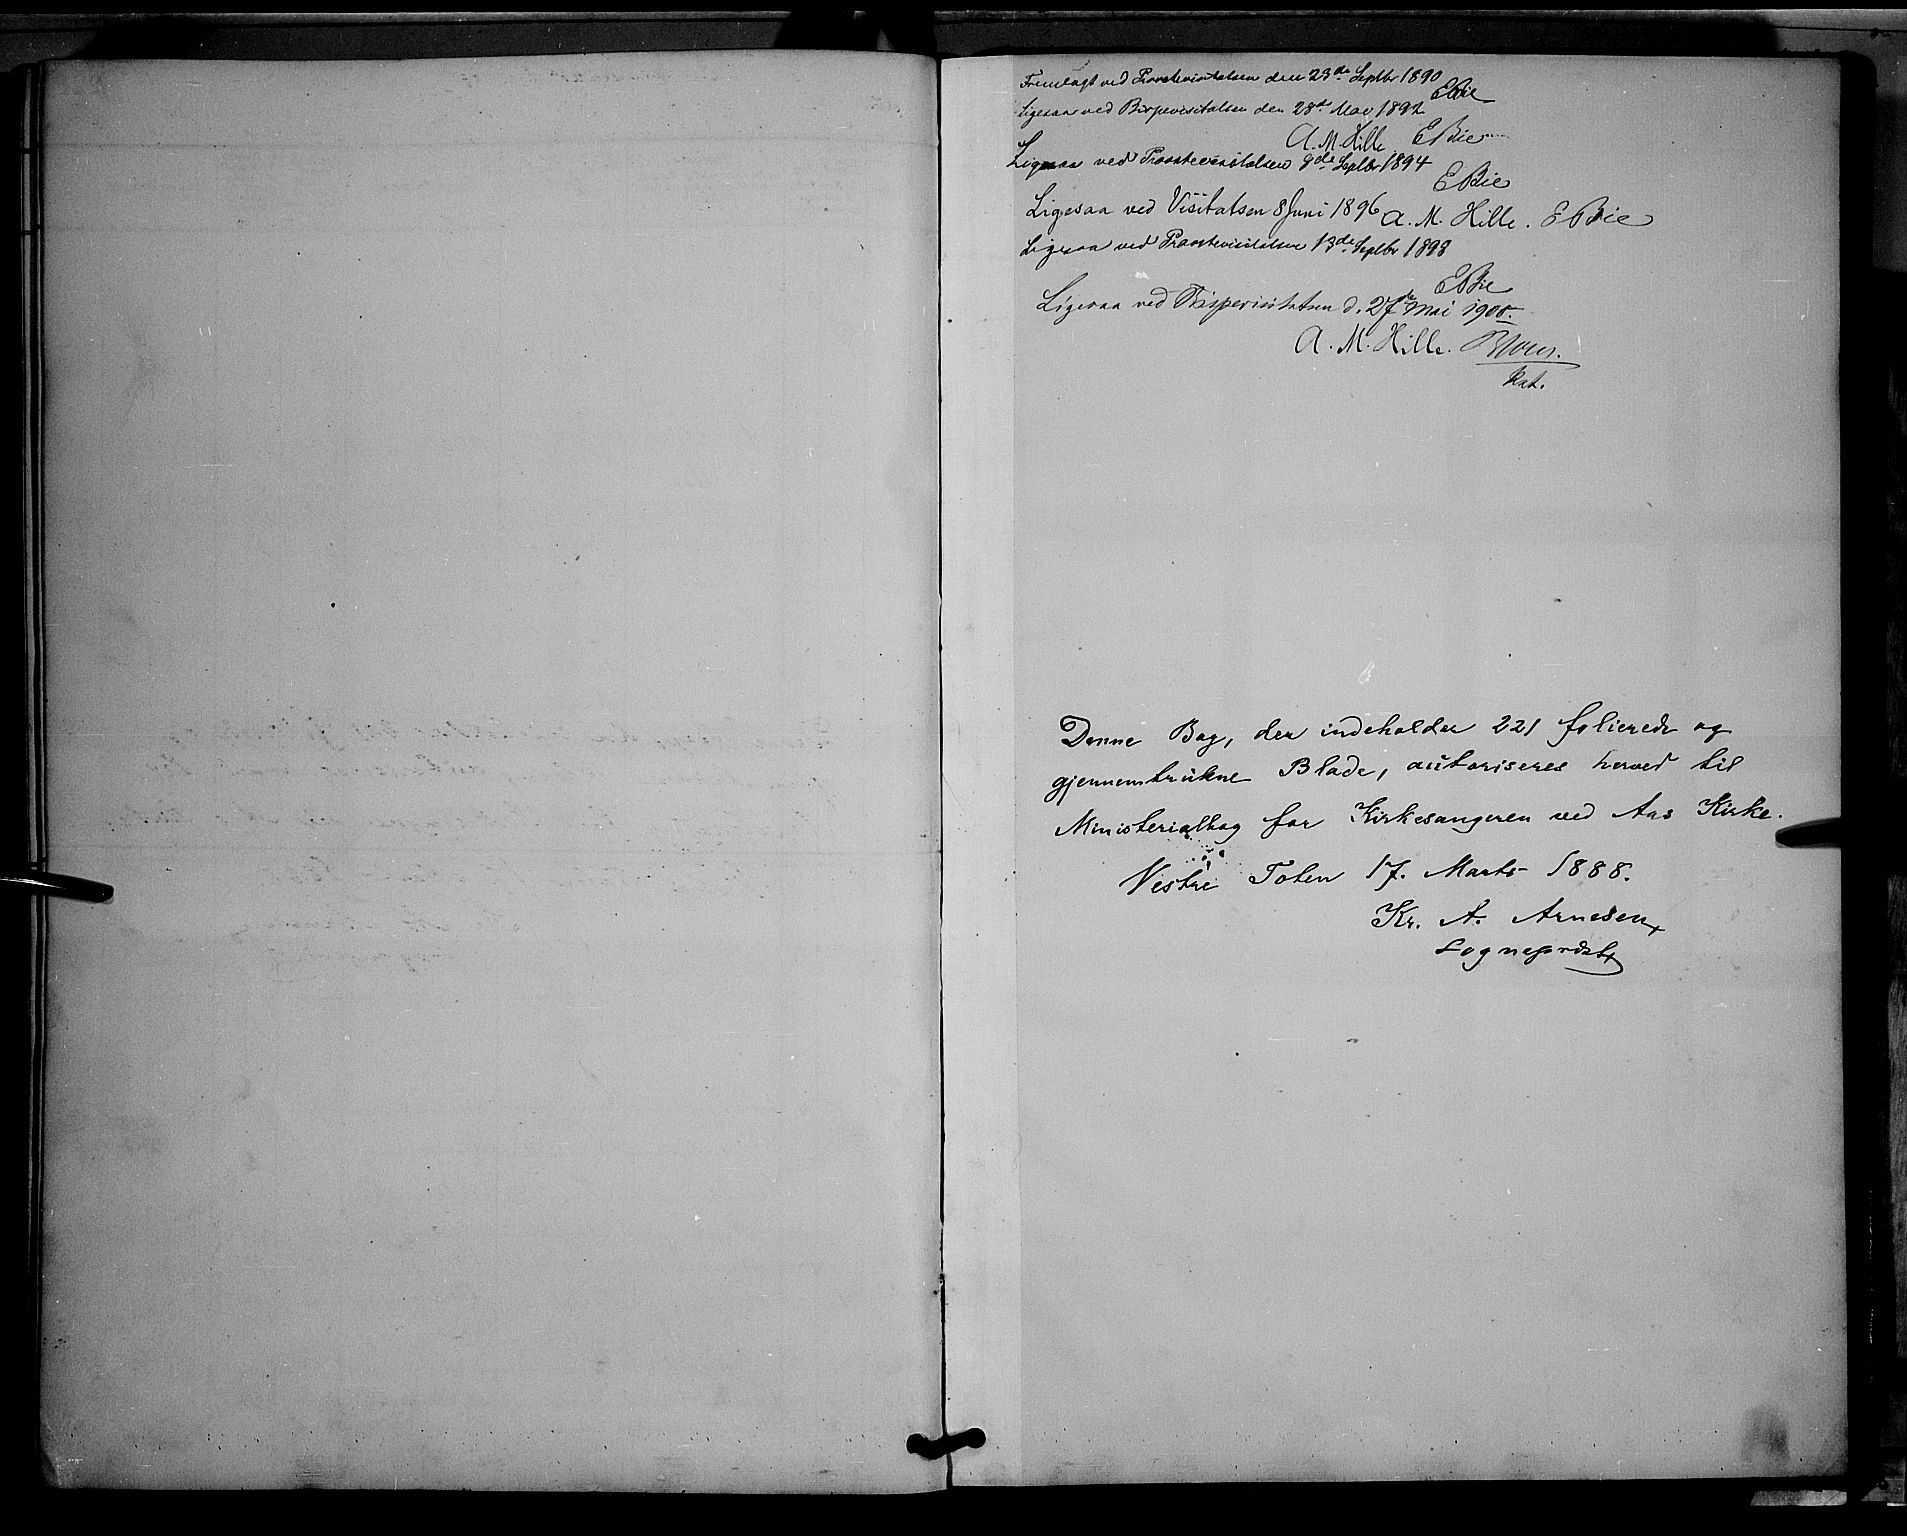 Fremlagt ved Provstevisitatsen den 23de Septbr 1890
EBie
Ligesaa ved Bispevisitatsen den 28de Mai 1892
A. M. Hille EBie
Ligesaa ved Provstevisitatsen 9de Septbr 1894
EBie
Ligesaa ved Visitatsen 8 Juni 1896 A. M. Hille. EBie
Ligesaa ved Provstevisitatsen 13de Septbr 1898
EBie
Ligesaa ved Bispevisitatsen d. 27de Mai 1900.
A. M. Hille.
Kat.
Denne Bog, der indeholder 221 folierede og
gjennemtrukne Blade, autoriseres herved til
Ministerialbog for Kirkesangeren ved Aas Kirke.
Vestre Toten 17. Marts 1888.
Kr. A. Arnesen,
Sogneprest,